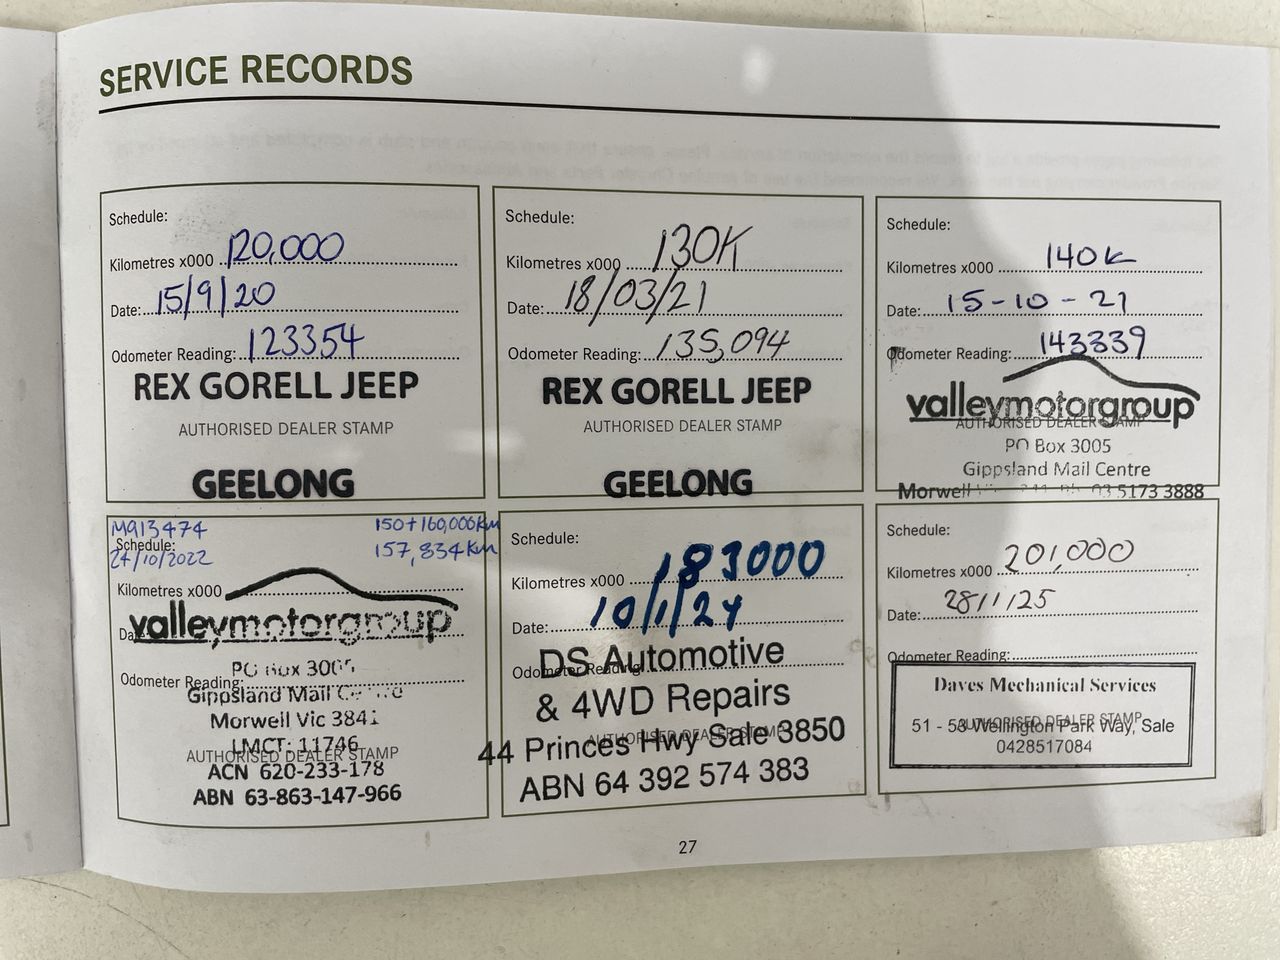 SERVICE RECORDS
Schedule:
Kilometres x000 120,000
Date: 15/9/20
Odometer Reading: 123354
REX GORELL JEEP
AUTHORISED DEALER STAMP
GEELONG
Schedule:
Kilometres x000 130K
Date: 18/03/21
Odometer Reading: 135,094
REX GORELL JEEP
AUTHORISED DEALER STAMP
GEELONG
Schedule:
Kilometres x000 140K
Date: 15-10-21
Odometer Reading: 143339
valleymotorgroup
AUTHORISED DEALER STAMP
PO Box 3005
Gippsland Mail Centre
Morwell 03 5173 3888
M913474 150+160,000km
Schedule:
24/10/2022 157,834km
Kilometres x000
valleymotorgroup
Date:
PO Box 3005
Odometer Reading:
Gippsland Mail Centre
Morwell Vic 3841
LMCT: 11746
AUTHORISED DEALER STAMP
ACN 620-233-178
ABN 63-863-147-966
Schedule:
Kilometres x000 183000
Date: 10/1/24
DS Automotive
Odometer Reading:
& 4WD Repairs
AUTHORISED DEALER STAMP
44 Princes Hwy Sale 3850
ABN 64 392 574 383
Schedule:
Kilometres x000 201,000
Date: 28/1/25
Odometer Reading:
Daves Mechanical Services
AUTHORISED DEALER STAMP
51 - 53 Wellington Park Way, Sale
0428517084
27